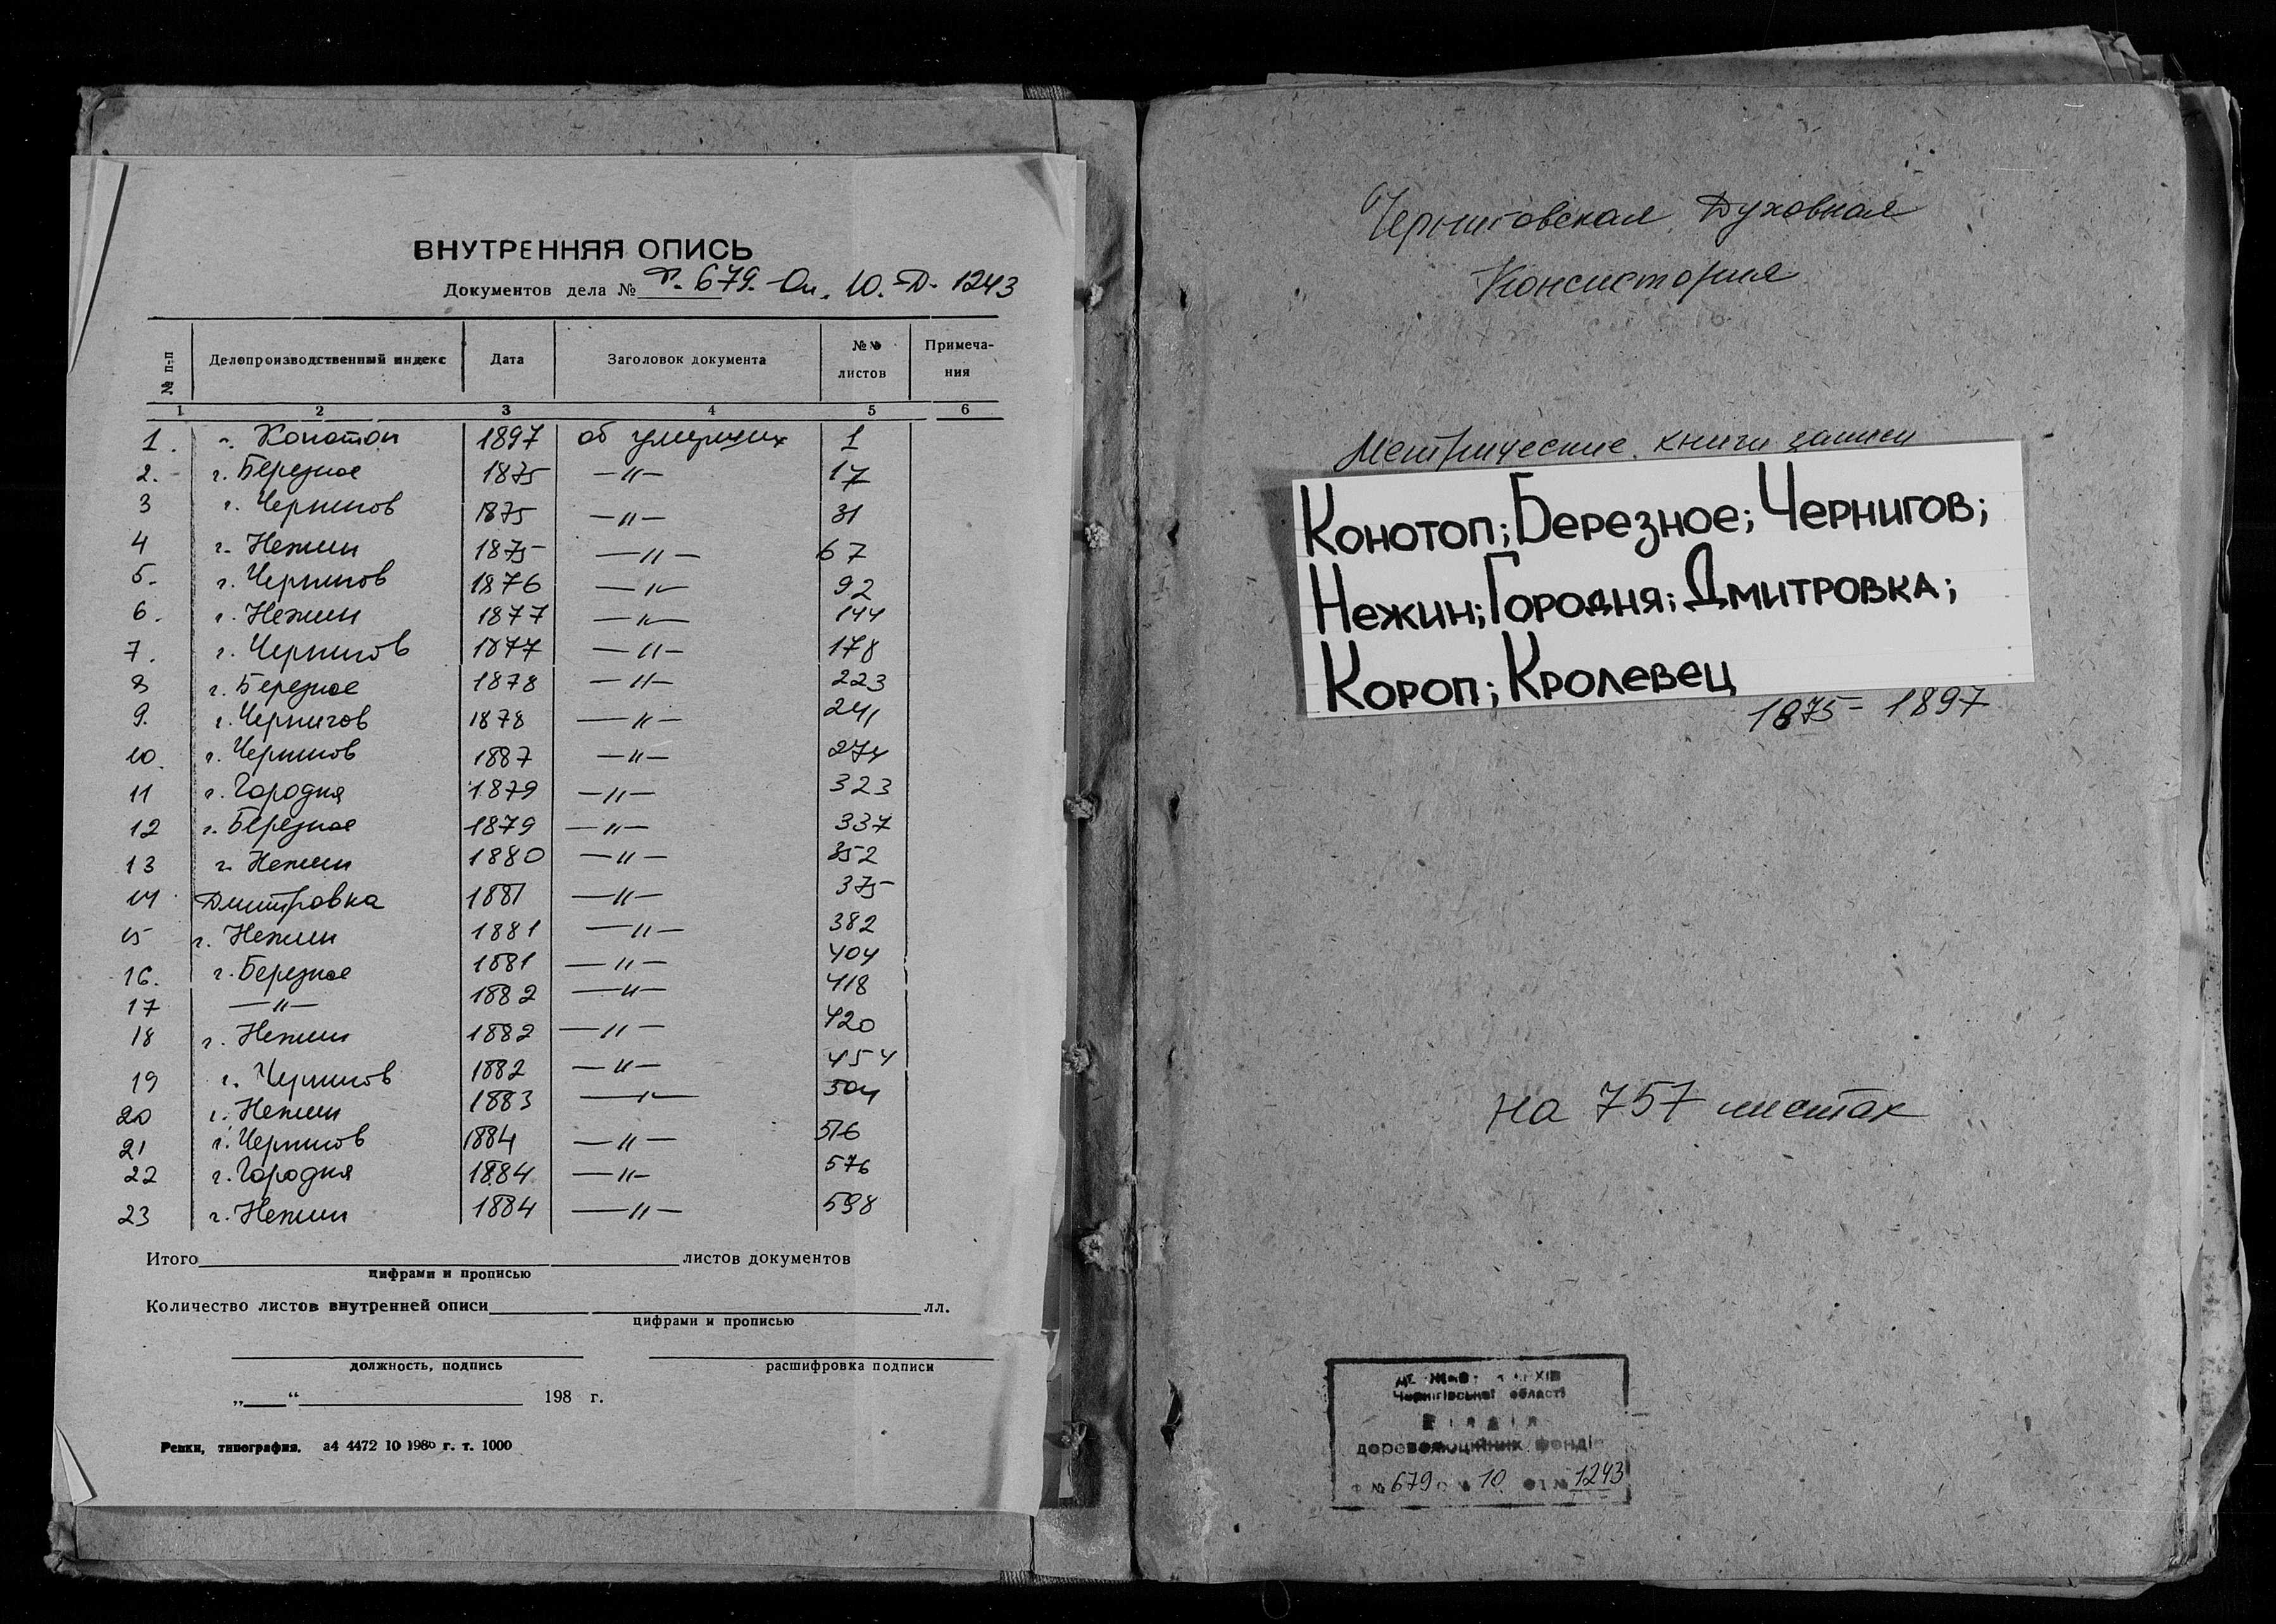 ВНУТРЕННЯЯ ОПИСЬ
Документов дела № Ф. 679. Оп. 10. Д. 1243
№ п-п Делопроизводственный индекс Дата Заголовок документа №№ листов Примеча- ния
1 2 3 4 5 6
1. г. Конотоп 1897 об умерших 1
2. г. Березное 1875 —"— 17
3 г. Чернигов 1875 —"— 31
4 г. Нежин 1875 —"— 67
5. г. Чернигов 1876 —"— 92
6. г. Нежин 1877 —"— 144
7. г. Чернигов 1877 —"— 178
8 г. Березное 1878 —"— 223
9. г. Чернигов 1878 —"— 241
10. г. Чернигов 1887 —"— 274
11 г. Городня 1879 —"— 323
12 г. Березное 1879 —"— 337
13 г. Нежин 1880 —"— 352
14. Дмитровка 1881 —"— 375
15 г. Нежин 1881 —"— 382
16. г. Березное 1881 —"— 404
17 —"— 1882 —"— 418
18 г. Нежин 1882 —"— 420
19 г. Чернигов 1882 —"— 454
20 г. Нежин 1883 —"— 504
21 г. Чернигов 1884 —"— 516
22 г. Городня 1884 —"— 576
23 г. Нежин 1884 —"— 598
Итого листов документов
цифрами и прописью
Количество листов внутренней описи лл.
цифрами и прописью
должность, подпись расшифровка подписи
„ “ 198 г.
Репки, типография. а4 4472 10 1980 г. т. 1000
Черниговская Духовная
Консистория
Метрические книги записи
Конотоп; Березное; Чернигов;
Нежин; Городня; Дмитровка;
Короп; Кролевец
1875 – 1897
на 757 листах
Чернігівської області
Відділ
дореволюційних фондів
Ф № 679 10 № 1243